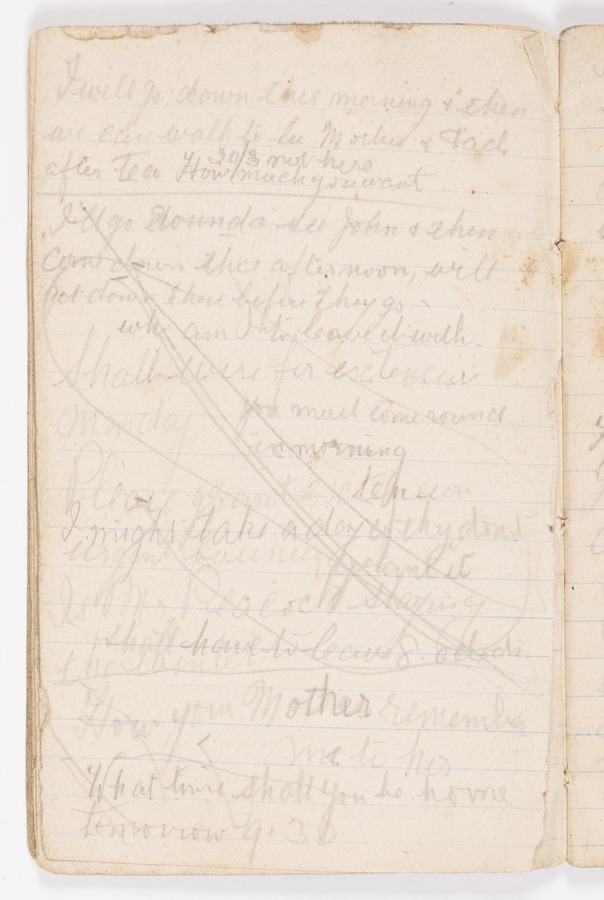 I will go down this morning & then
we can walk to see Mother & Dad
after Tea 30/3 not here
How much you want
I'll go round & see John & then
come down this afternoon, will
get down there before they go
who am I to leave it with.
Shall wire for extension
Monday you must come round
in morning
Please grant extension
I might take a day if they dont
urgent grant it
Is Mr Peacock staying
shall have to leave 8. o'clock
the
How your Mother remember
me to her
What time shall you be home
tomorrow 9.30